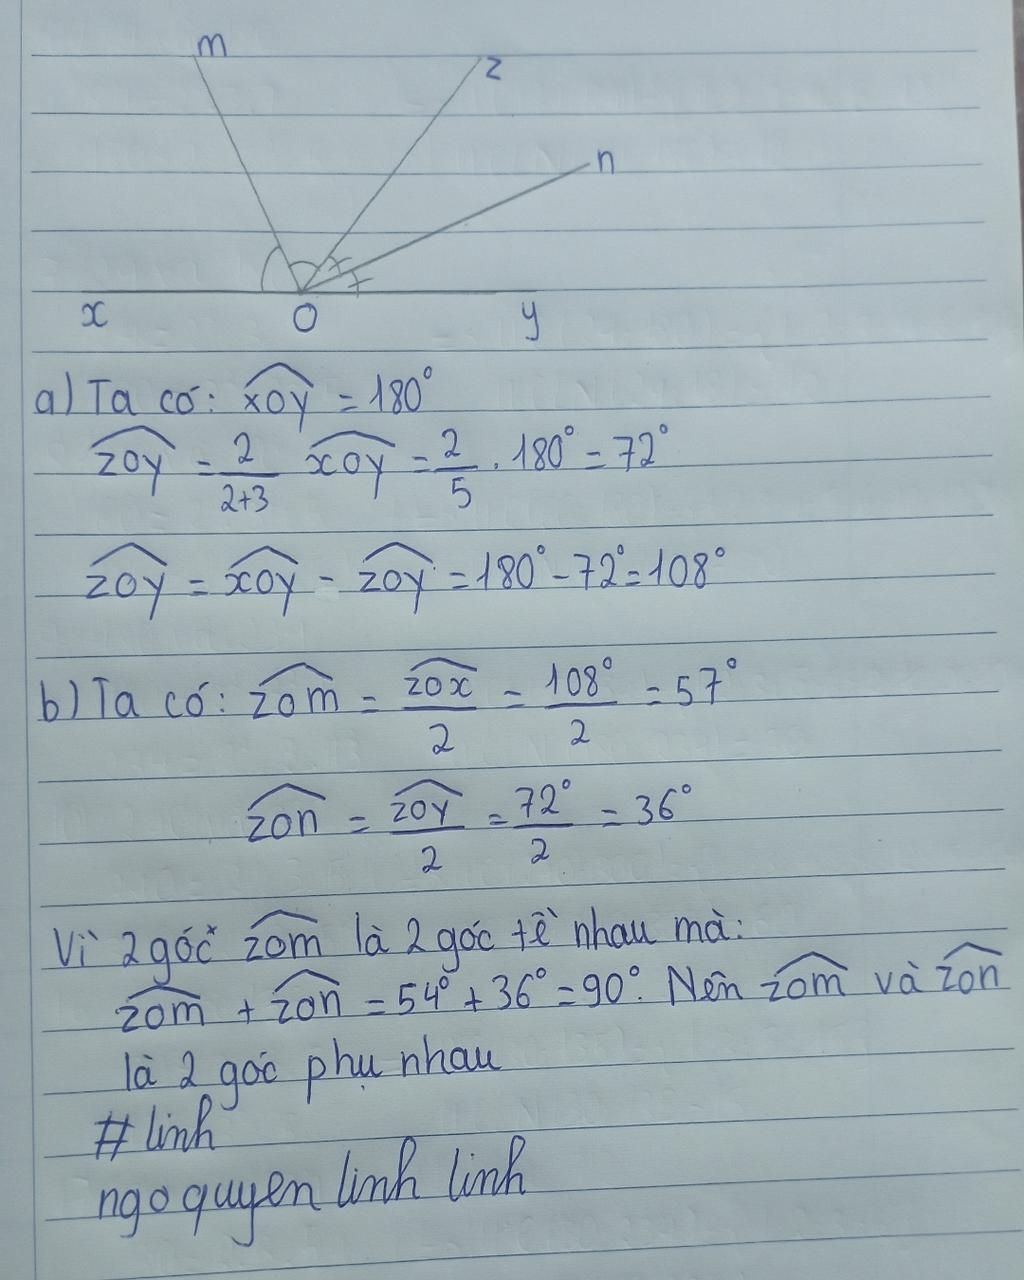 m
z
n
x
O
y
a) Ta có: xOy = 180°
zOy = 2/(2+3) xOy = 2/5 . 180° = 72°
zOy = xOy - zOy = 180° - 72° = 108°
b) Ta có: zOm = zOx/2 = 108°/2 = 57°
zOn = zOy/2 = 72°/2 = 36°
Vì 2 góc zOm là 2 góc tề nhau mà:
zOm + zOn = 54° + 36° = 90°. Nên zOm và zOn
là 2 góc phụ nhau
# linh
ngo quyen linh linh